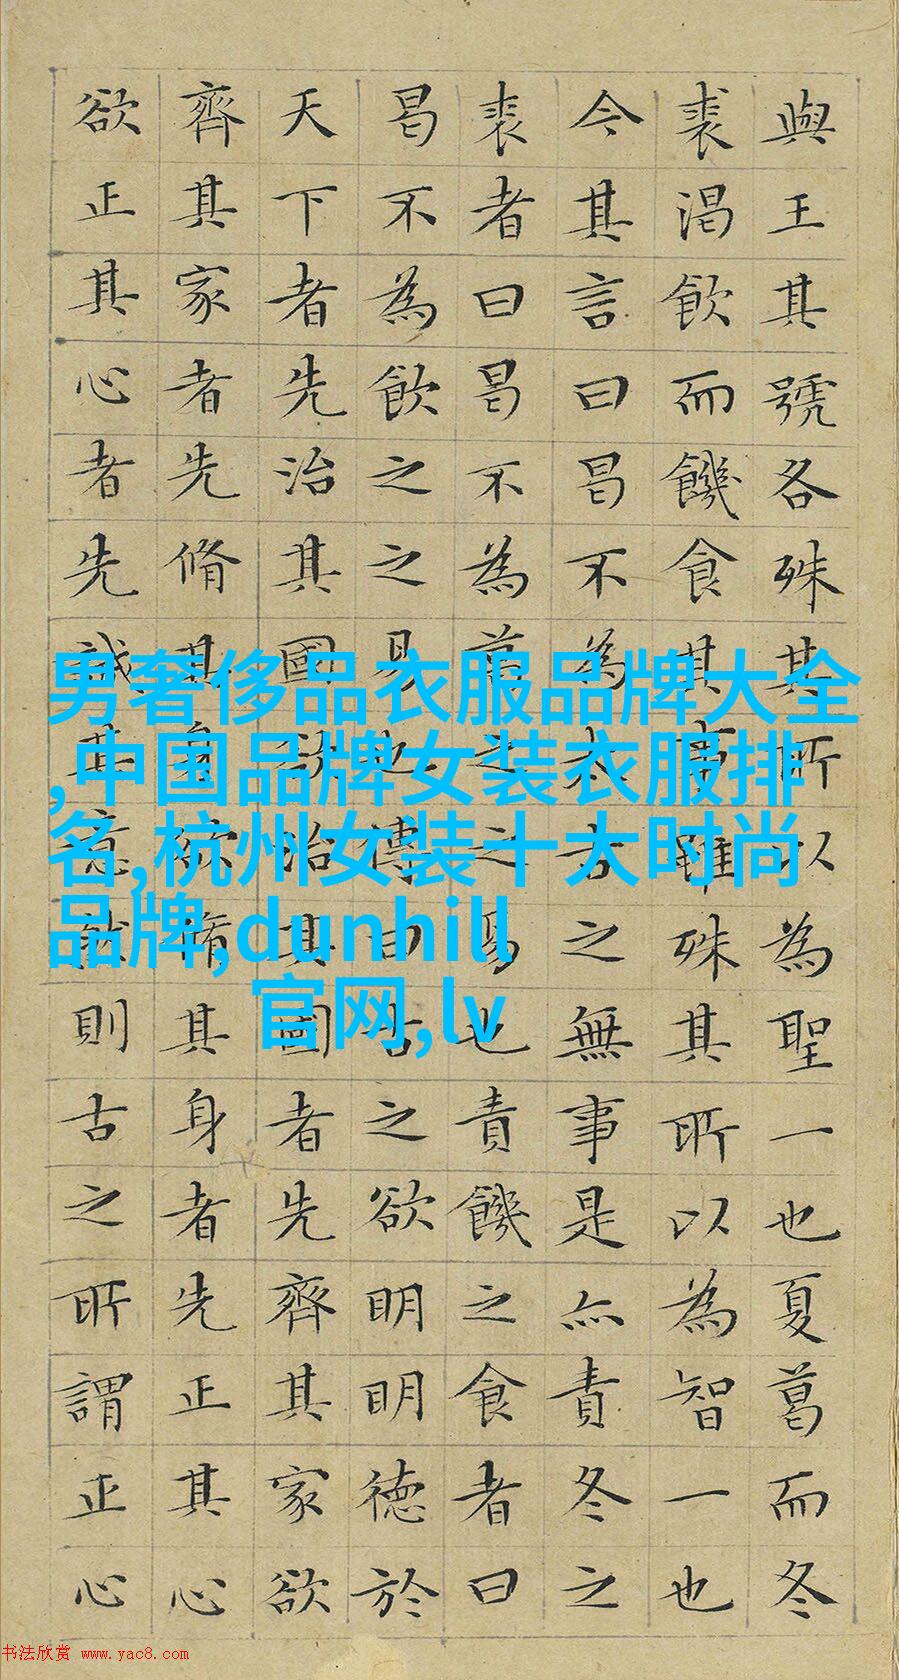 與王其號各殊其所以為聖一也夏葛而冬
裘渴飲而饑食其事雖殊其所以為智一也
今其言曰曷不為太古之無事是亦責冬之
裘者曰曷不為葛之之易也責饑之食者曰
曷不為飲之之易也傳曰古之欲明明德於
天下者先治其國欲治其國者先齊其家欲
齊其家者先脩其身欲脩其身者先正其心
欲正其心者先誠其意然則古之所謂正心
男奢侈品衣服品牌大全
,中国品牌女装衣服排
名,杭州女装十大时尚
品牌,dunhill
官网,lv
书法欣赏 www.yac8.com